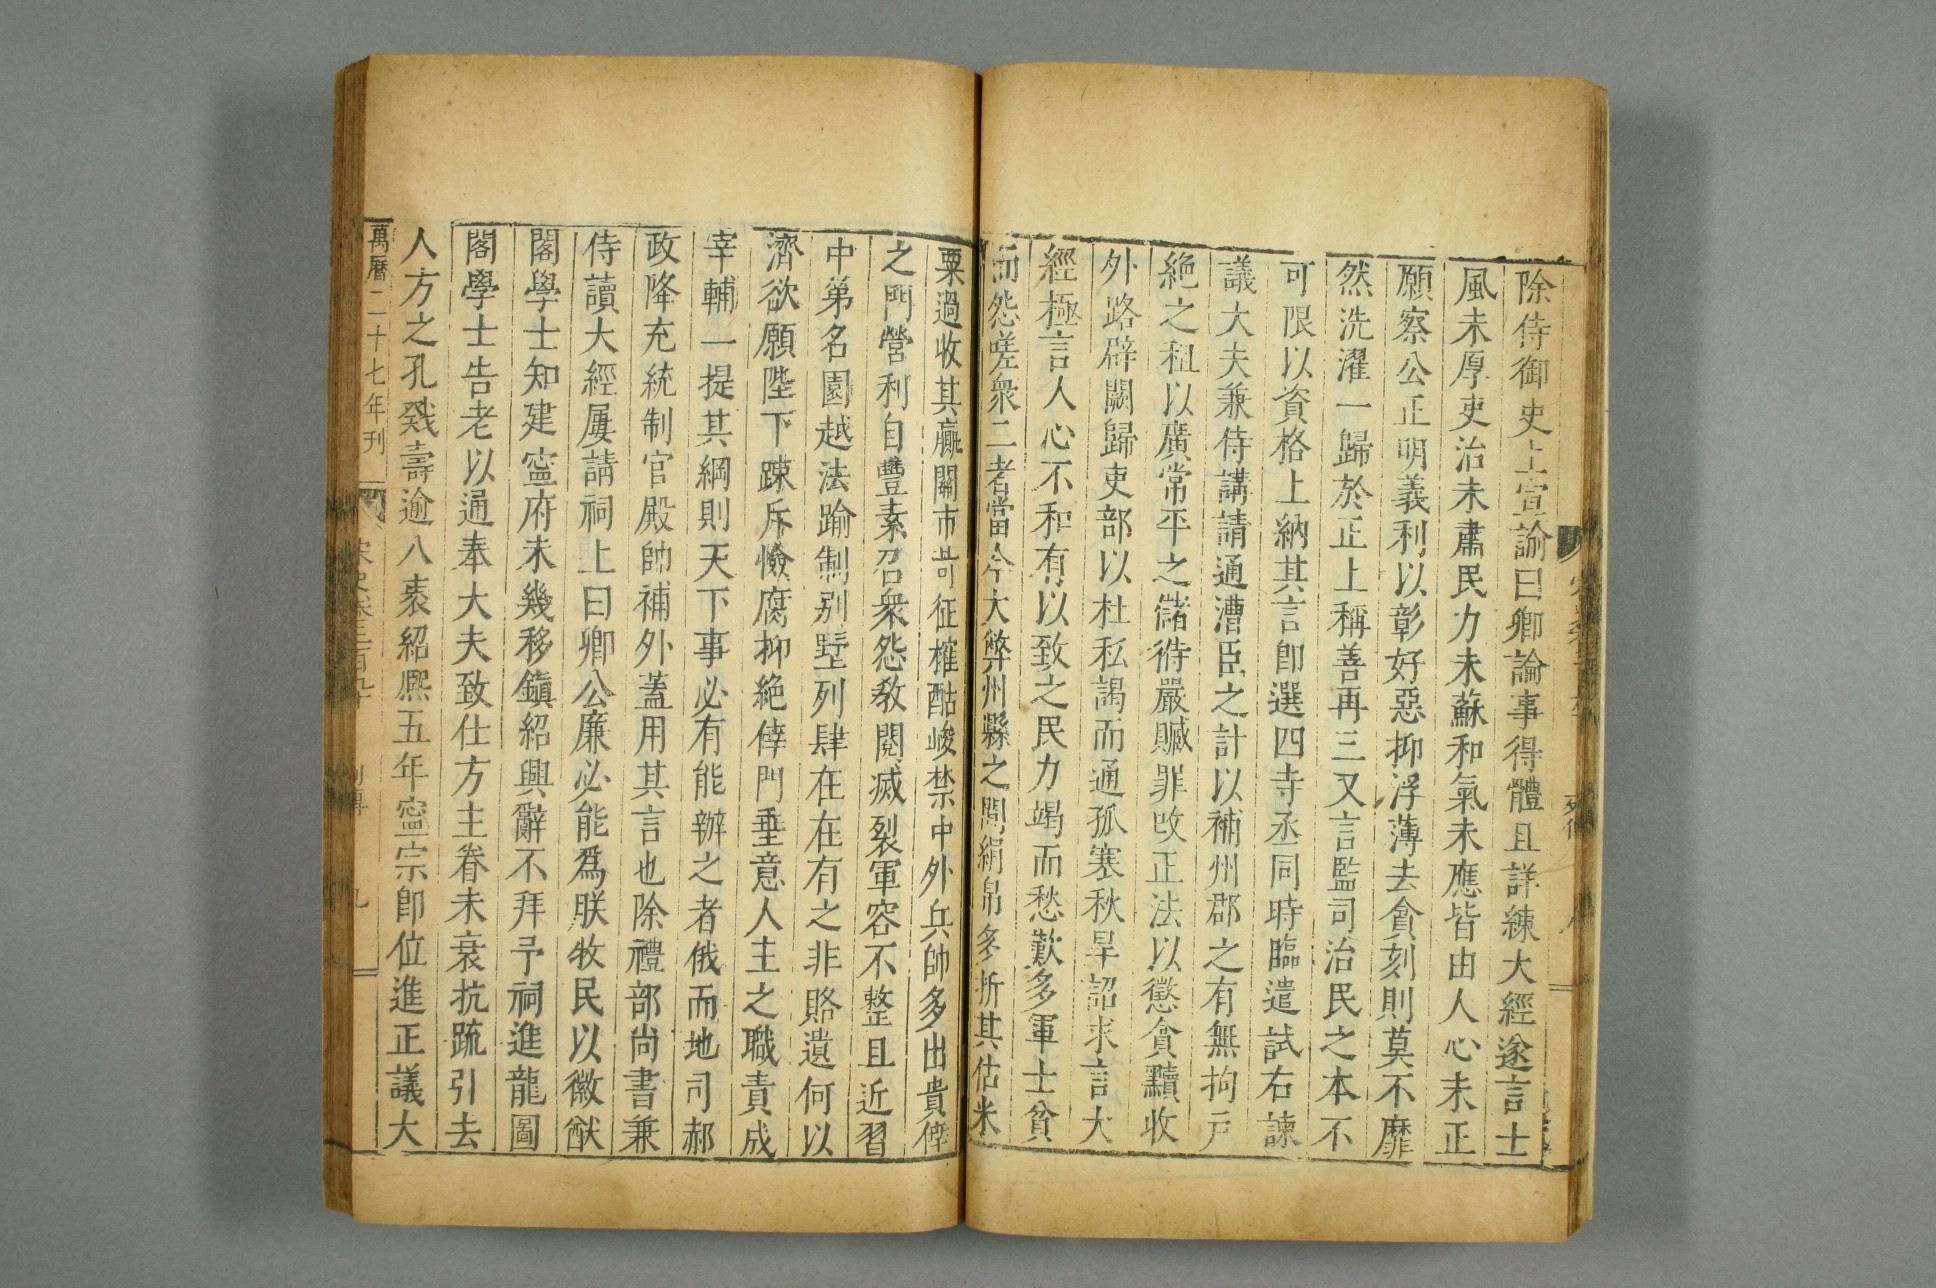 除侍御史上宣諭曰卿論事得體且詳練大經遂言士
風未厚吏治未肅民力未蘇和氣未應皆由人心未正
願察公正明義利以彰好惡抑浮薄去貪刻則莫不靡
然洗濯一歸於正上稱善再三又言監司治民之本不
可限以資格上納其言即選四寺丞同時臨遣試右諫
議大夫兼侍講請通漕臣之計以補州郡之有無拘戶
絶之租以廣常平之儲待嚴贓罪改正法以懲貪黷收
外路辟闕歸吏部以杜私謁而通孤寒秋旱詔求言大
經極言人心不和有以致之民力竭而愁歎多軍士貧
而怨嗟衆二者當今大弊州縣之間絹帛多折其估米
粟過收其贏關市苛征榷酤峻禁中外兵帥多出貴倖
之門營利自豐素召衆怨教閱滅裂軍容不整且近習
中第名園越法踰制别墅列肆在在有之非賂遺何以
濟欲願陛下踈斥憸腐抑絶倖門垂意人主之職責成
宰輔一提其綱則天下事必有能辦之者俄而地司郝
政降充統制官殿帥補外蓋用其言也除禮部尚書兼
侍讀大經屢請祠上曰卿公廉必能爲朕牧民以徽猷
閣學士知建寧府未幾移鎭紹興辭不拜予祠進龍圖
閣學士告老以通奉大夫致仕方主眷未衰抗疏引去
人方之孔戣壽逾八袠紹熙五年寧宗卽位進正議大
萬曆二十七年刊 宋史卷三百九十 列傳 九